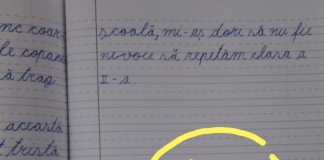 nc roar-
le copaci
ă trag
această
t tristă
școală, mi-aș dori să nu fie
nevoie să repetăm clasa a
II-a